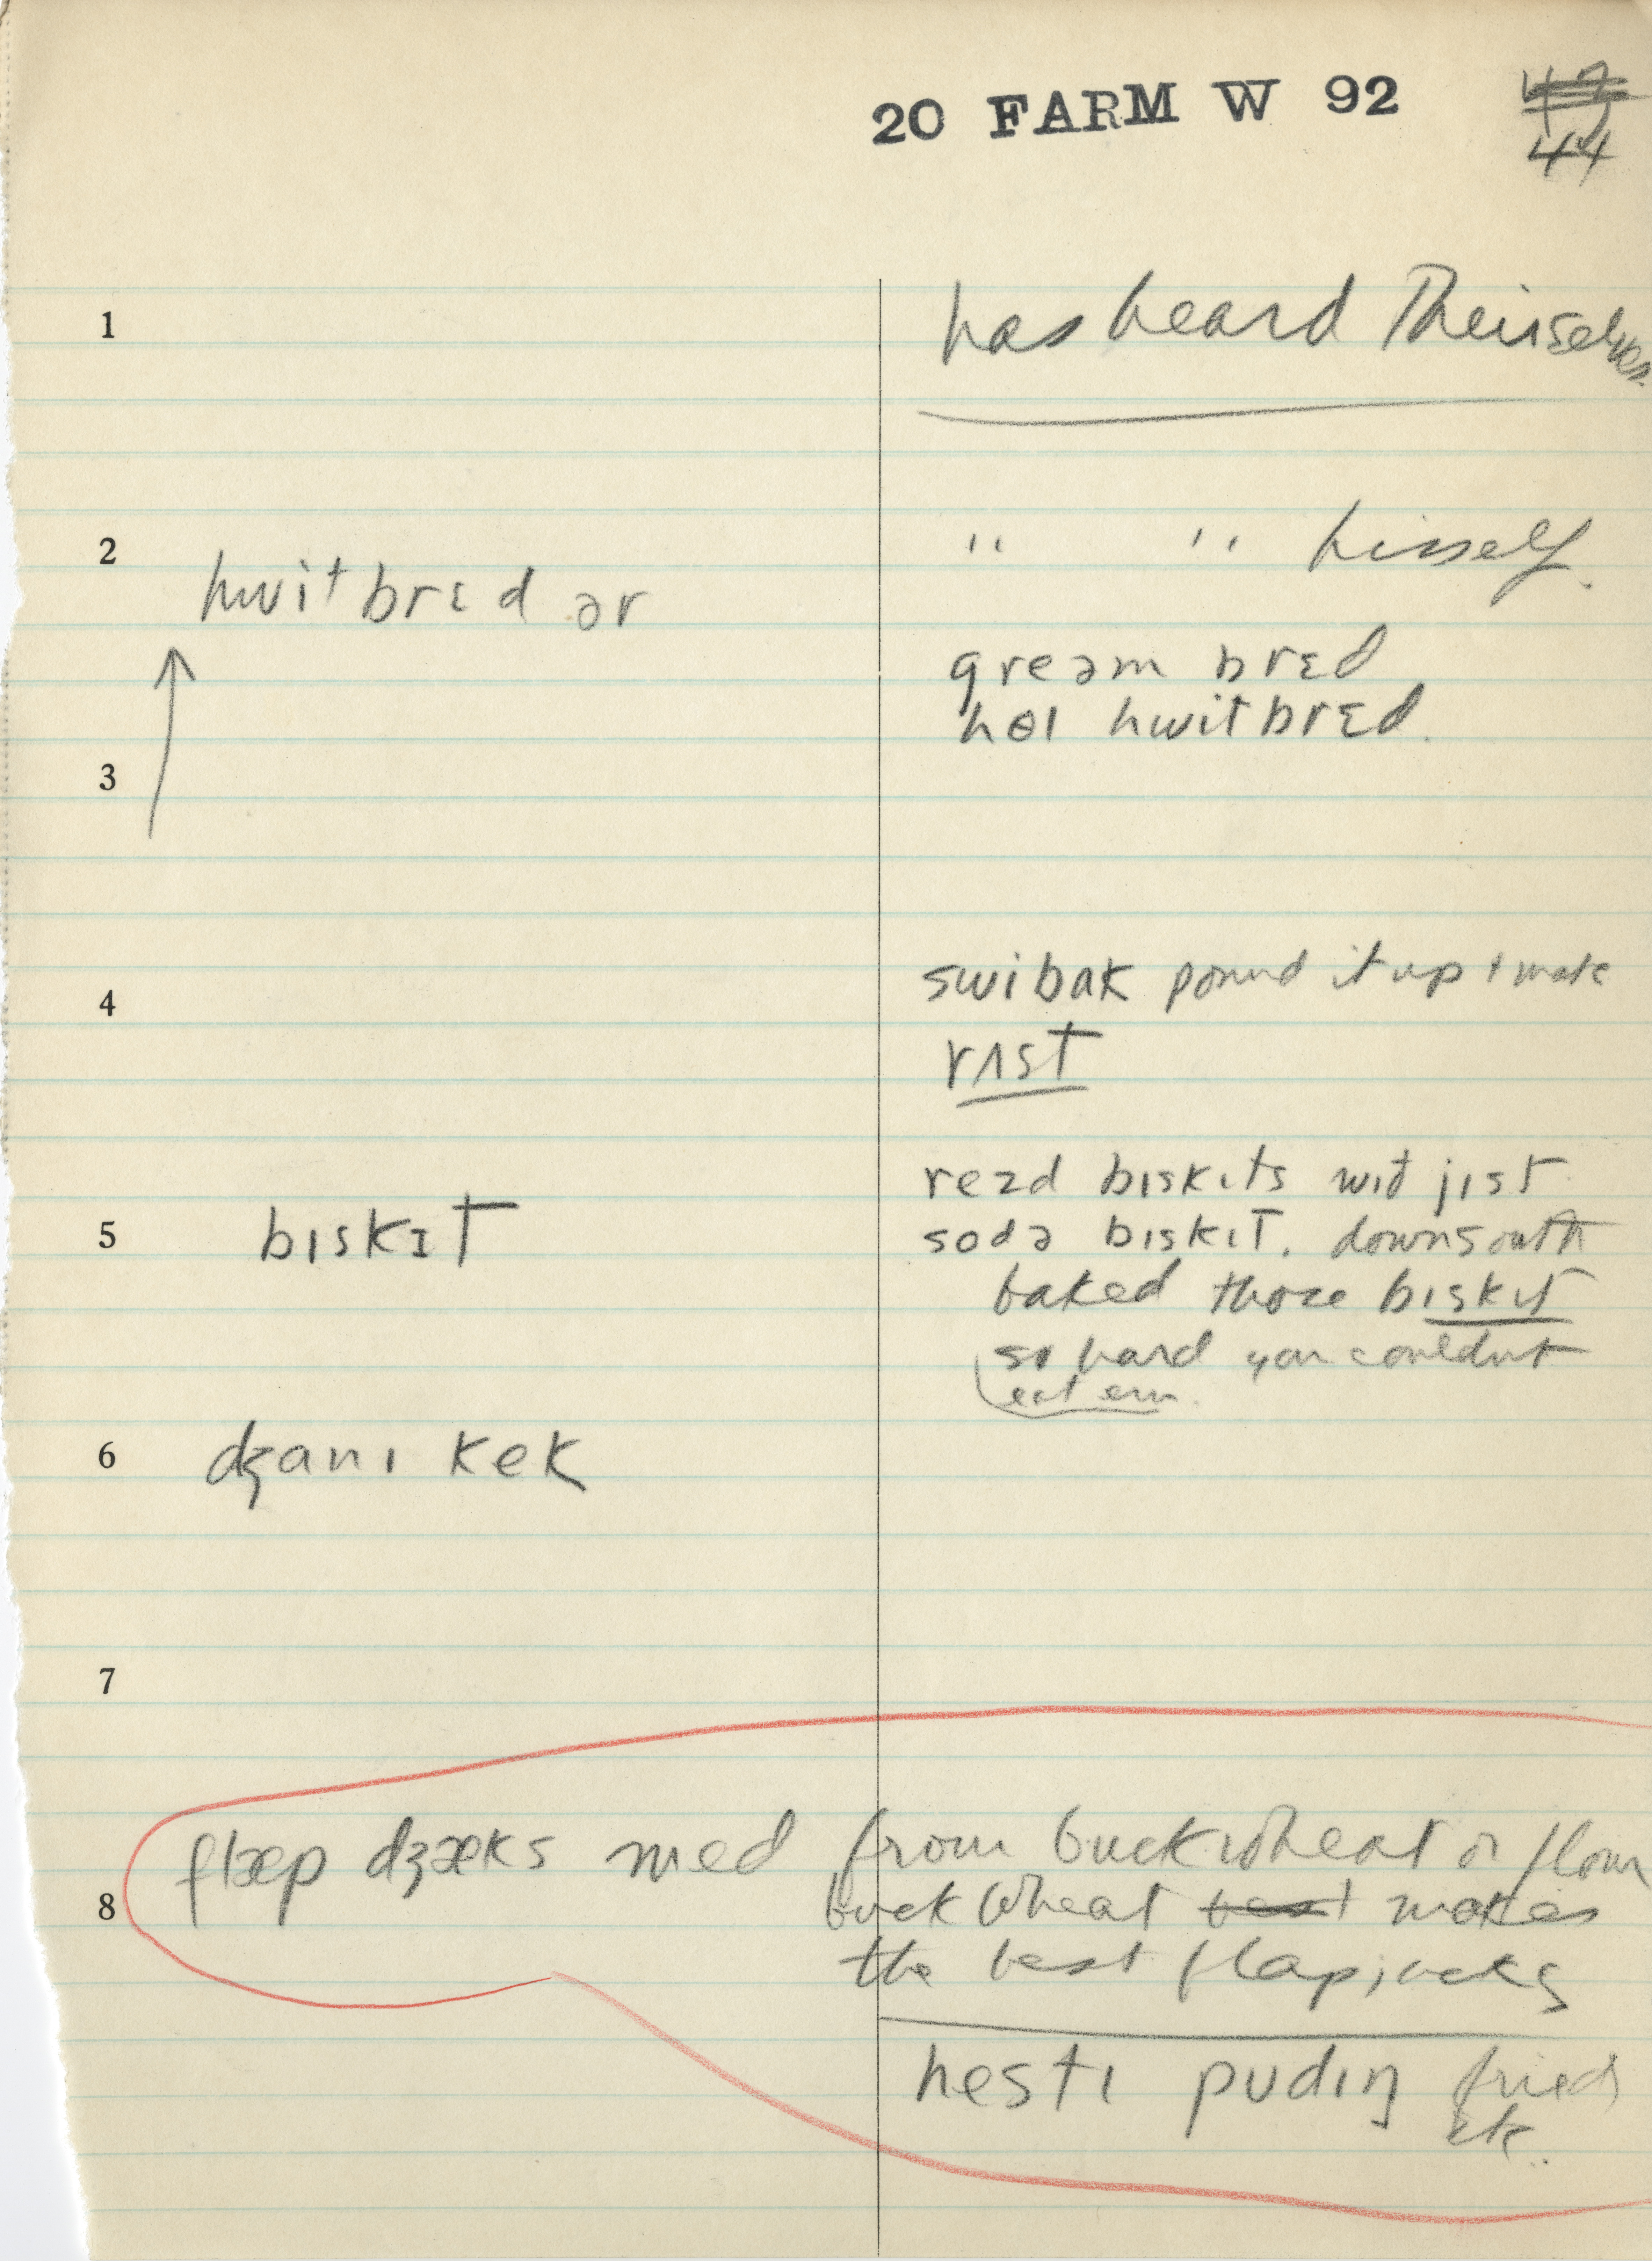 20 FARM W 92
44
1 has heard Theirselves
2 " " hisself.
hwit brɛd ər
greəm brɛd
hol hwit brɛd.
3
swibak pound it up & make
4
rʌst
rezd bɪskɪts wɪð jɪst
5 bɪskɪt sodə bɪskɪt. down south
baked those bɪskɪt
so hard you couldnt
eat em.
6 dʒanɪ kek
7
flæp dʒæks med from buckwheat or flour
8 buckwheat best makes
the best flapjacks
hestɪ pudɪŋ fried
etc.